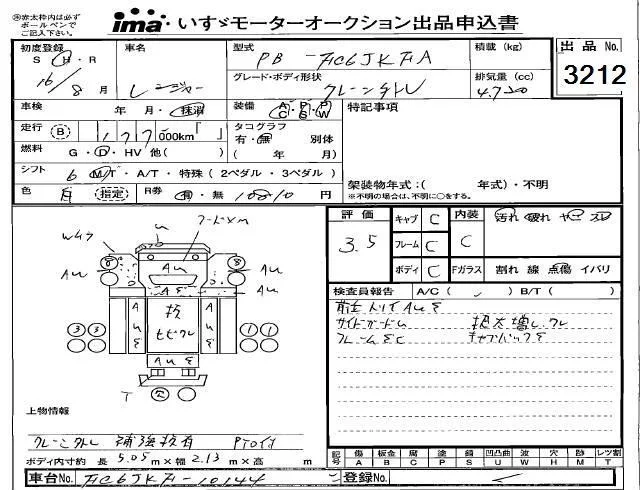 ※赤太枠内は必ず
ボールペンで
ご記入下さい。
ima いすゞモーターオークション出品申込書
初度登録
S・H・R
16/8 月
車名
レンジャー
型式
PB-FC6JKFA
積載 (kg)
出品 No.
3212
グレード・ボディ形状
クレーン外し
排気量 (cc)
4.720
車検 年・月・抹消
装備 A/C P/S P/W
特記事項
走行 B 177,000km「 」
タコグラフ
有・無 別体
( 年 月)
燃料 G・D・HV 他( )
シフト 6 MT・A/T・特殊(2ペダル・3ペダル)
架装物年式:( 年式)・不明
※不明の場合は、不明に○をする。
色 白 指定
R券 有・無 10810 円
評価 3.5
キャブ C
フレーム C
ボディ C
内装 C
汚れ 破れ ヤニ スレ
Fガラス 割れ 線 点傷 イバリ
検査員報告 A/C( ) B/T( )
サイドガードM
フレームSC
キャブバックS
U フードXM
Wイタ
AU AU
AU
AS
A A
U U
S S
抜
サビクレ
3 3 1 1
AUS
T
上物情報
クレーン外し 補強鉄有 PTO付
ボディ内寸約 長 5.05 m×幅 2.13 m×高 m
記号
傷 板金 腐 塗 錆 凹凸曲 波 穴 跡 レツ割
A B C P S U W H M T
車台No. FC6JKF-10144
登録No.